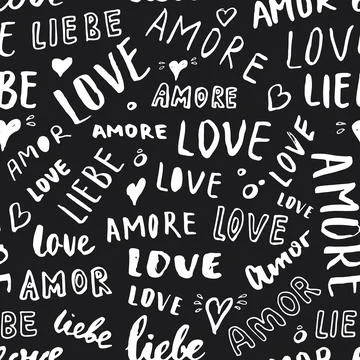 Love
LIEBE
AMORE
AMOR
LOVE
LOVE
BE
LIEB
AMORE
AMORE
LOVE
LOVE
AMORE
AMOR
LOVE
LIEBE
LOVE
LOVE
AMORE
LOVE
Love
LOVE
amor
AMOR
LOVE
AMOR
BE
liebe
liebe
LIE
love